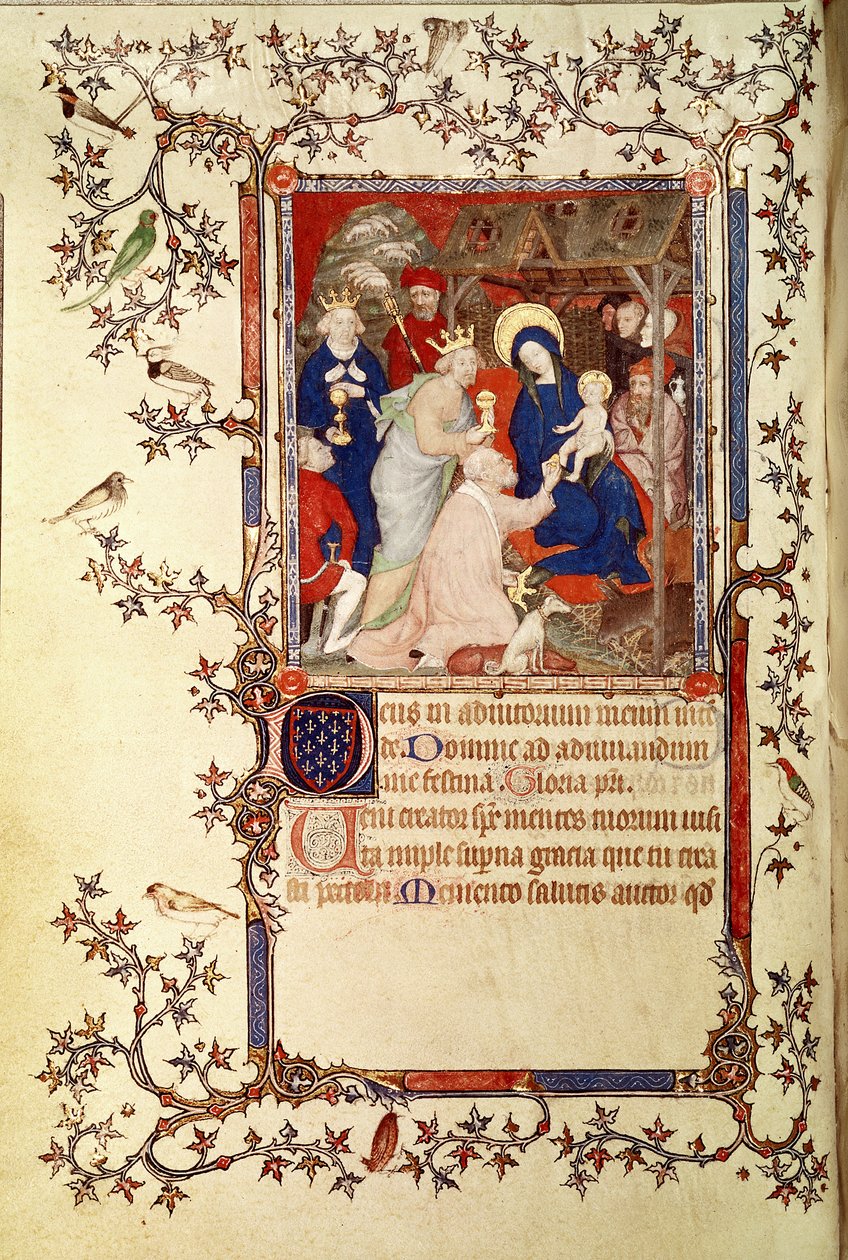 Deus in adiutorium meum inte
de. Domine ad adiuuandum
me festina. Gloria pri.
Veni creator spc mentes tuorum uisi
ta imple superna gracia que tu crea
sti pectora. Memento salutis auctor qd